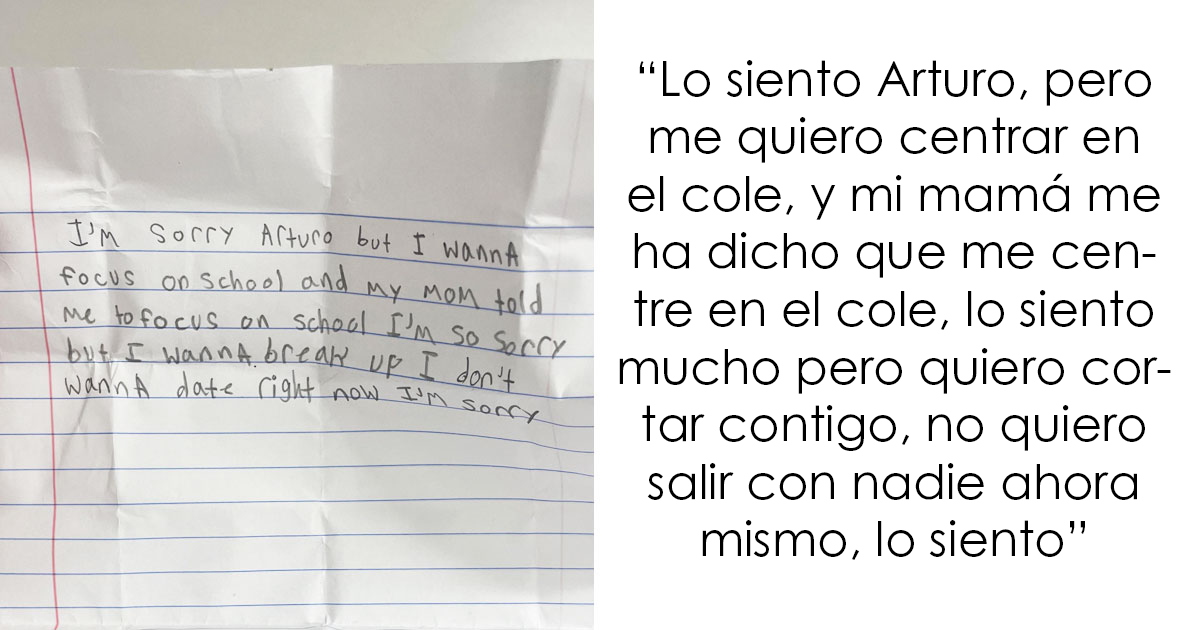 I'M Sorry Arturo but I wannA
focus on school and my mom told
me to focus on school I'M so sorry
but I wannA break up I don't
wannA date right now I'M sorry
“Lo siento Arturo, pero
me quiero centrar en
el cole, y mi mamá me
ha dicho que me cen-
tre en el cole, lo siento
mucho pero quiero cor-
tar contigo, no quiero
salir con nadie ahora
mismo, lo siento”